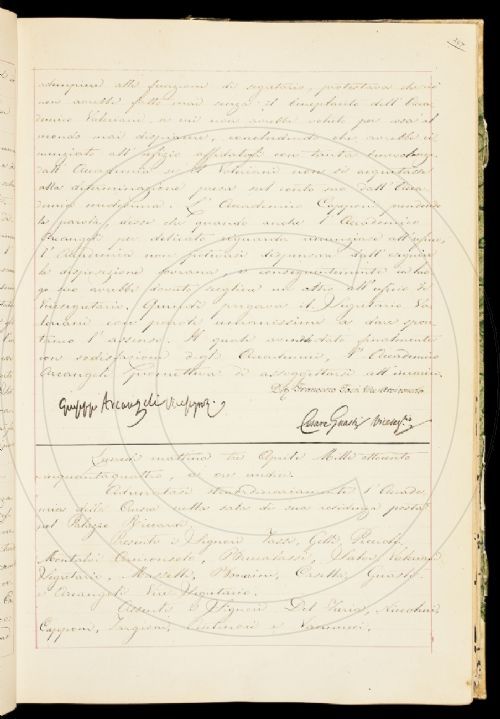 adempiere alle funzioni di segretario, protestava che ciò
non avrebbe fatto mai senza il beneplacito dell'Acca-
demico Valeriani, a cui non avrebbe voluto per cosa al
mondo mai dispiacere, concludendo che avrebbe ri-
nunziato all'ufizio affidatogli con tanta benevolenza
dall'Accademia se il Valeriani non si acquietasse
alla determinazione presa sul conto suo dall'Acca-
demia medesima. L'Accademico Capponi prendendo
la parola, disse che quando anche l'Accademico
Arcangeli per delicato riguardo rinunziasse all'ufizio,
l'Accademia non potrebbe dispensarsi dall'eseguire
la disposizione sovrana, e conseguentemente in luo-
go suo avrebbe dovuto scegliere un altro all'ufizio di
Vicesegretario. Quindi pregava il Segretario Va-
leriani con parole umanissime a dare spon-
taneo l'assenso. Il quale assentì dato finalmente
con sodisfazione degli Accademici, l'Accademico
Arcangeli prometteva di assoggettarsi all'incarico.
Giuseppe Arcangeli Vicesegr.
Cesare Guasti Vicesegr.
Lunedì mattina tre Aprile Mille ottocento
cinquantaquattro, ad ore undici.
Adunatasi straordinariamente l'Accade-
mia della Crusca nelle sale di sua residenza poste
nel Palazzo Riccardi.
Presenti i Signori Tassi, Gelli,
Montalvi, Valeriani
Segretario, Mazzetti, Bonaini, Casella, Guasti
e Arcangeli Vice Segretario.
Assenti i Signori Del Furia, Niccolini
Capponi, Targioni, e Vannucci.